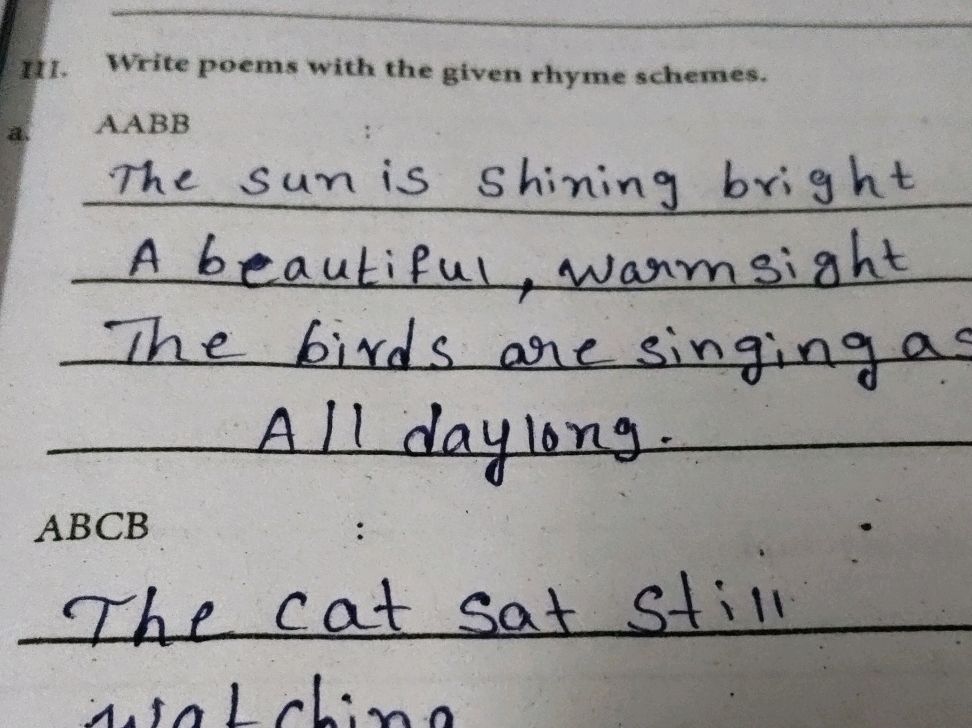 III. Write poems with the given rhyme schemes.
a. AABB :
The sun is shining bright
A beautiful, warm sight
The birds are singing as
All day long.
ABCB :
The cat sat still
watching